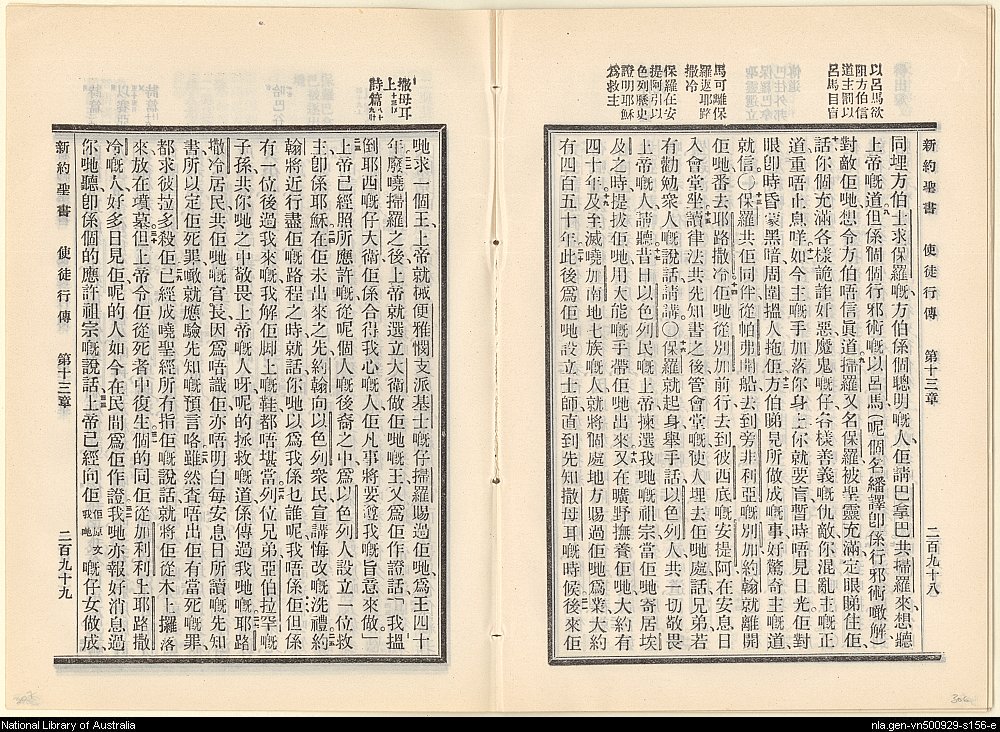 新約聖書　使徒行傳　第十三章　二百九十八
以呂馬欲
阻方伯信
道主罰以
呂馬目盲
馬可離保
羅返耶路
撒冷
保羅在安
提阿引以
色列歷史
證明耶穌
爲救主
同埋方伯士求保羅、方伯係個聰明嘅人、佢請巴拿巴共掃羅來、想聽
上帝嘅道、但係個個行邪術嘅以呂馬、(呢個名繙譯卽係行邪術噉解)
對敵佢哋、想令方伯唔信眞道、掃羅又名保羅、被聖靈充滿、定眼睇住佢、
話、你個充滿各樣詭詐奸惡、魔鬼嘅仔、各樣善義嘅仇敵、你混亂主嘅正
道、重唔止息咩、如今主嘅手加落你身上、你就要盲、暫時唔見日光、佢對
眼卽時昏蒙黑暗、周圍搵人拖佢、方伯睇見所做成嘅事、好驚奇主嘅道、
就信〇保羅共佢同伴、從帕弗開船、去到旁非利亞嘅別加、約翰就離開
佢哋、番去耶路撒冷、佢哋從別加前行、去到彼西底嘅安提阿、在安息日
入會堂坐、讀律法共先知書之後、管會堂嘅、使人埋去佢哋處話、兄弟、若
有勸勉衆人嘅說話、請講〇保羅就起身舉手話、以色列人、共一切敬畏
上帝嘅人、請聽、昔日以色列民嘅上帝、揀選我哋嘅祖宗、當佢哋寄居埃
及之時、提拔佢哋、用大能嘅手、帶佢哋出來、又在曠野撫養佢哋、大約有
四十年、及至滅嘵加南地七族嘅人、就將個處地方賜過佢哋爲業、大約
有四百五十年、此後爲佢哋設立士師、直到先知撒母耳嘅時候、後來佢
撒母耳
上十三章十四節
詩篇八十九篇二十節
哋求一個王、上帝就械便雅憫支派、基士嘅仔掃羅、賜過佢哋爲王四十
年、廢嘵掃羅之後、上帝就選立大衛做佢哋嘅王、又爲佢作證話、「我搵
倒耶西嘅仔大衛、佢係合得我心嘅人、佢凡事將要遵我嘅旨意來做」
上帝已經照所應許嘅、從呢個人嘅後裔之中、爲以色列人設立一位救
主、卽係耶穌、在佢未出來之先、約翰向以色列衆民、宣講悔改嘅洗禮、約
翰將近行盡佢嘅路程之時、就話、你哋以爲我係乜誰呢、我唔係佢、但係
有一位後過我來嘅、我解佢脚上嘅鞋、都唔堪當、列位兄弟、亞伯拉罕嘅
子孫、共你哋之中敬畏上帝嘅人呀、呢的拯救嘅道、係傳過我哋嘅、耶路
撒冷居民、共佢哋嘅官長、因爲唔識佢、亦唔明白每安息日所讀嘅先知
書、所以定佢死罪、噉就應驗先知嘅預言咯、雖然查唔出佢有當死嘅罪、
都求彼拉多殺佢、已經成嘵聖經所有指佢嘅說話、就將佢從木上攞落
來、放在墳墓、但上帝令佢從死者中復生、個的同佢從加利利上耶路撒
冷嘅人、好多日見佢、呢的人如今在民間爲佢作證、我哋亦報好消息過
你哋聽、卽係個的應許祖宗嘅說話、上帝已經向佢我哋佢原文嘅仔女做成
新約聖書　使徒行傳　第十三章　二百九十九
National Library of Australia
nla.gen-vn500929-s156-e